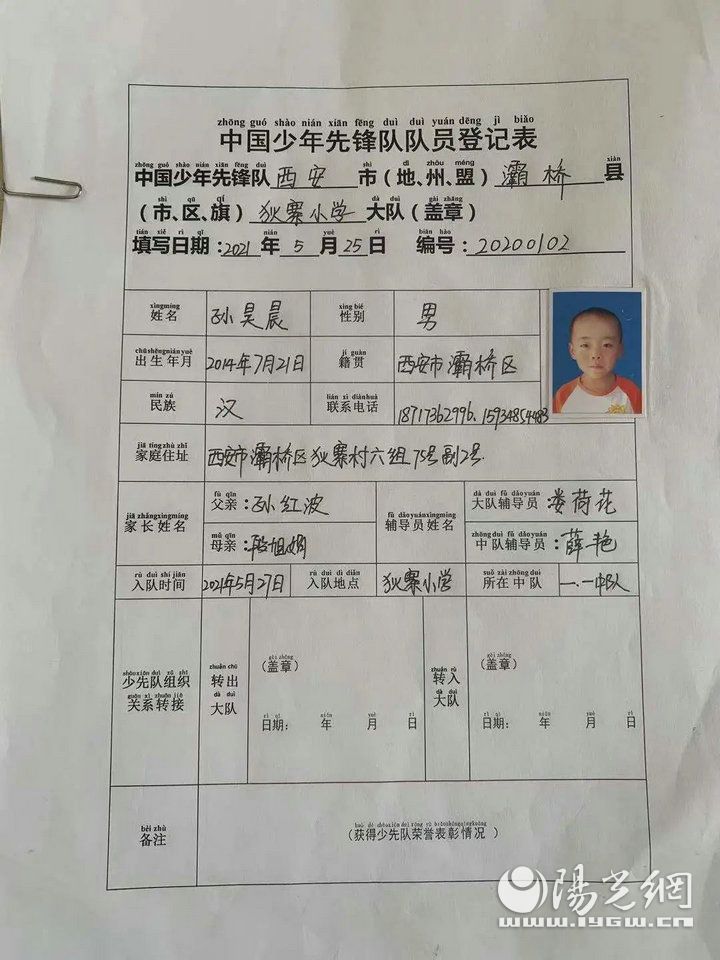 zhōng guó shào nián xiān fēng duì duì yuán dēng jì biǎo
中国少年先锋队队员登记表
zhōng guó shào nián xiān fēng duì shì dì zhōu méng xiàn
中国少年先锋队 西安 市（地、州、盟） 灞桥 县
shì qū qí dà duì gài zhāng
（市、区、旗） 狄寨小学 大队（盖章）
tián xiě rì qī nián yuè rì biān hào
填写日期：2021 年 5 月 25 日 编号：20200102
xìngmíng xìng bié
姓名 孙昊晨 性别 男
chūshēngniányuè jí guàn
出生年月 2014年7月21日 籍贯 西安市灞桥区
mín zú lián xì diànhuà
民族 汉 联系电话 18717362996、15934854483
jiā tíng zhù zhǐ
家庭住址 西安市灞桥区狄寨村六组75号副2号
fù qīn dà duì fǔ dǎo yuán
父亲：孙红波 大队辅导员：娄荷花
jiā zhǎngxìngmíng fǔ dǎoyuánxìngmíng
家长姓名 辅导员姓名
mǔ qīn zhōng duì fǔ dǎo yuán
母亲：段旭娟 中队辅导员：薛艳
rù duì shí jiān rù duì dì diǎn suǒ zài zhōng duì
入队时间 2021年5月27日 入队地点 狄寨小学 所在中队 一.一中队
gài zhāng gài zhāng
（盖章） （盖章）
shàoxiān duì zǔ zhī zhuǎn chū zhuǎn rù
少先队组织 转出 转入
guān xì zhuǎn jiē dà duì dà duì
关系转接 大队 大队
rì qī nián yuè rì rì qī nián yuè rì
日期： 年 月 日 日期： 年 月 日
bèi zhù
备注 （获得少先队荣誉表彰情况）
陽光網
www.iygw.cn